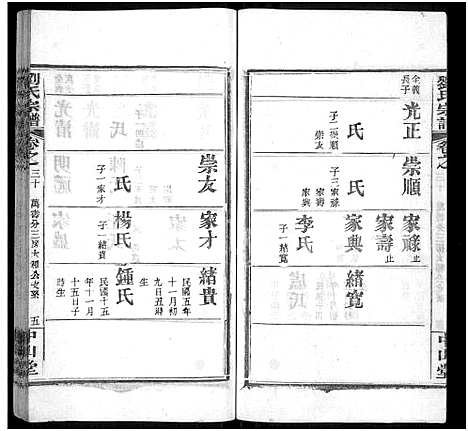 劉氏宗譜
卷之
中山堂
全義長子
光正
氏
子二 崇順 崇友
崇順
氏
子三 家祿 家壽 家興
家祿 止
家壽 止
家興
李氏
子一 緒寬
緒寬
崇友
氏
子一 家才
家才
楊氏
子一 緒貴
緒貴
民國五年
十一月初
九日丑時
生
鍾氏
民國十五
年十一月
十五日子
時生
劉氏宗譜
卷之三十
五
中山堂